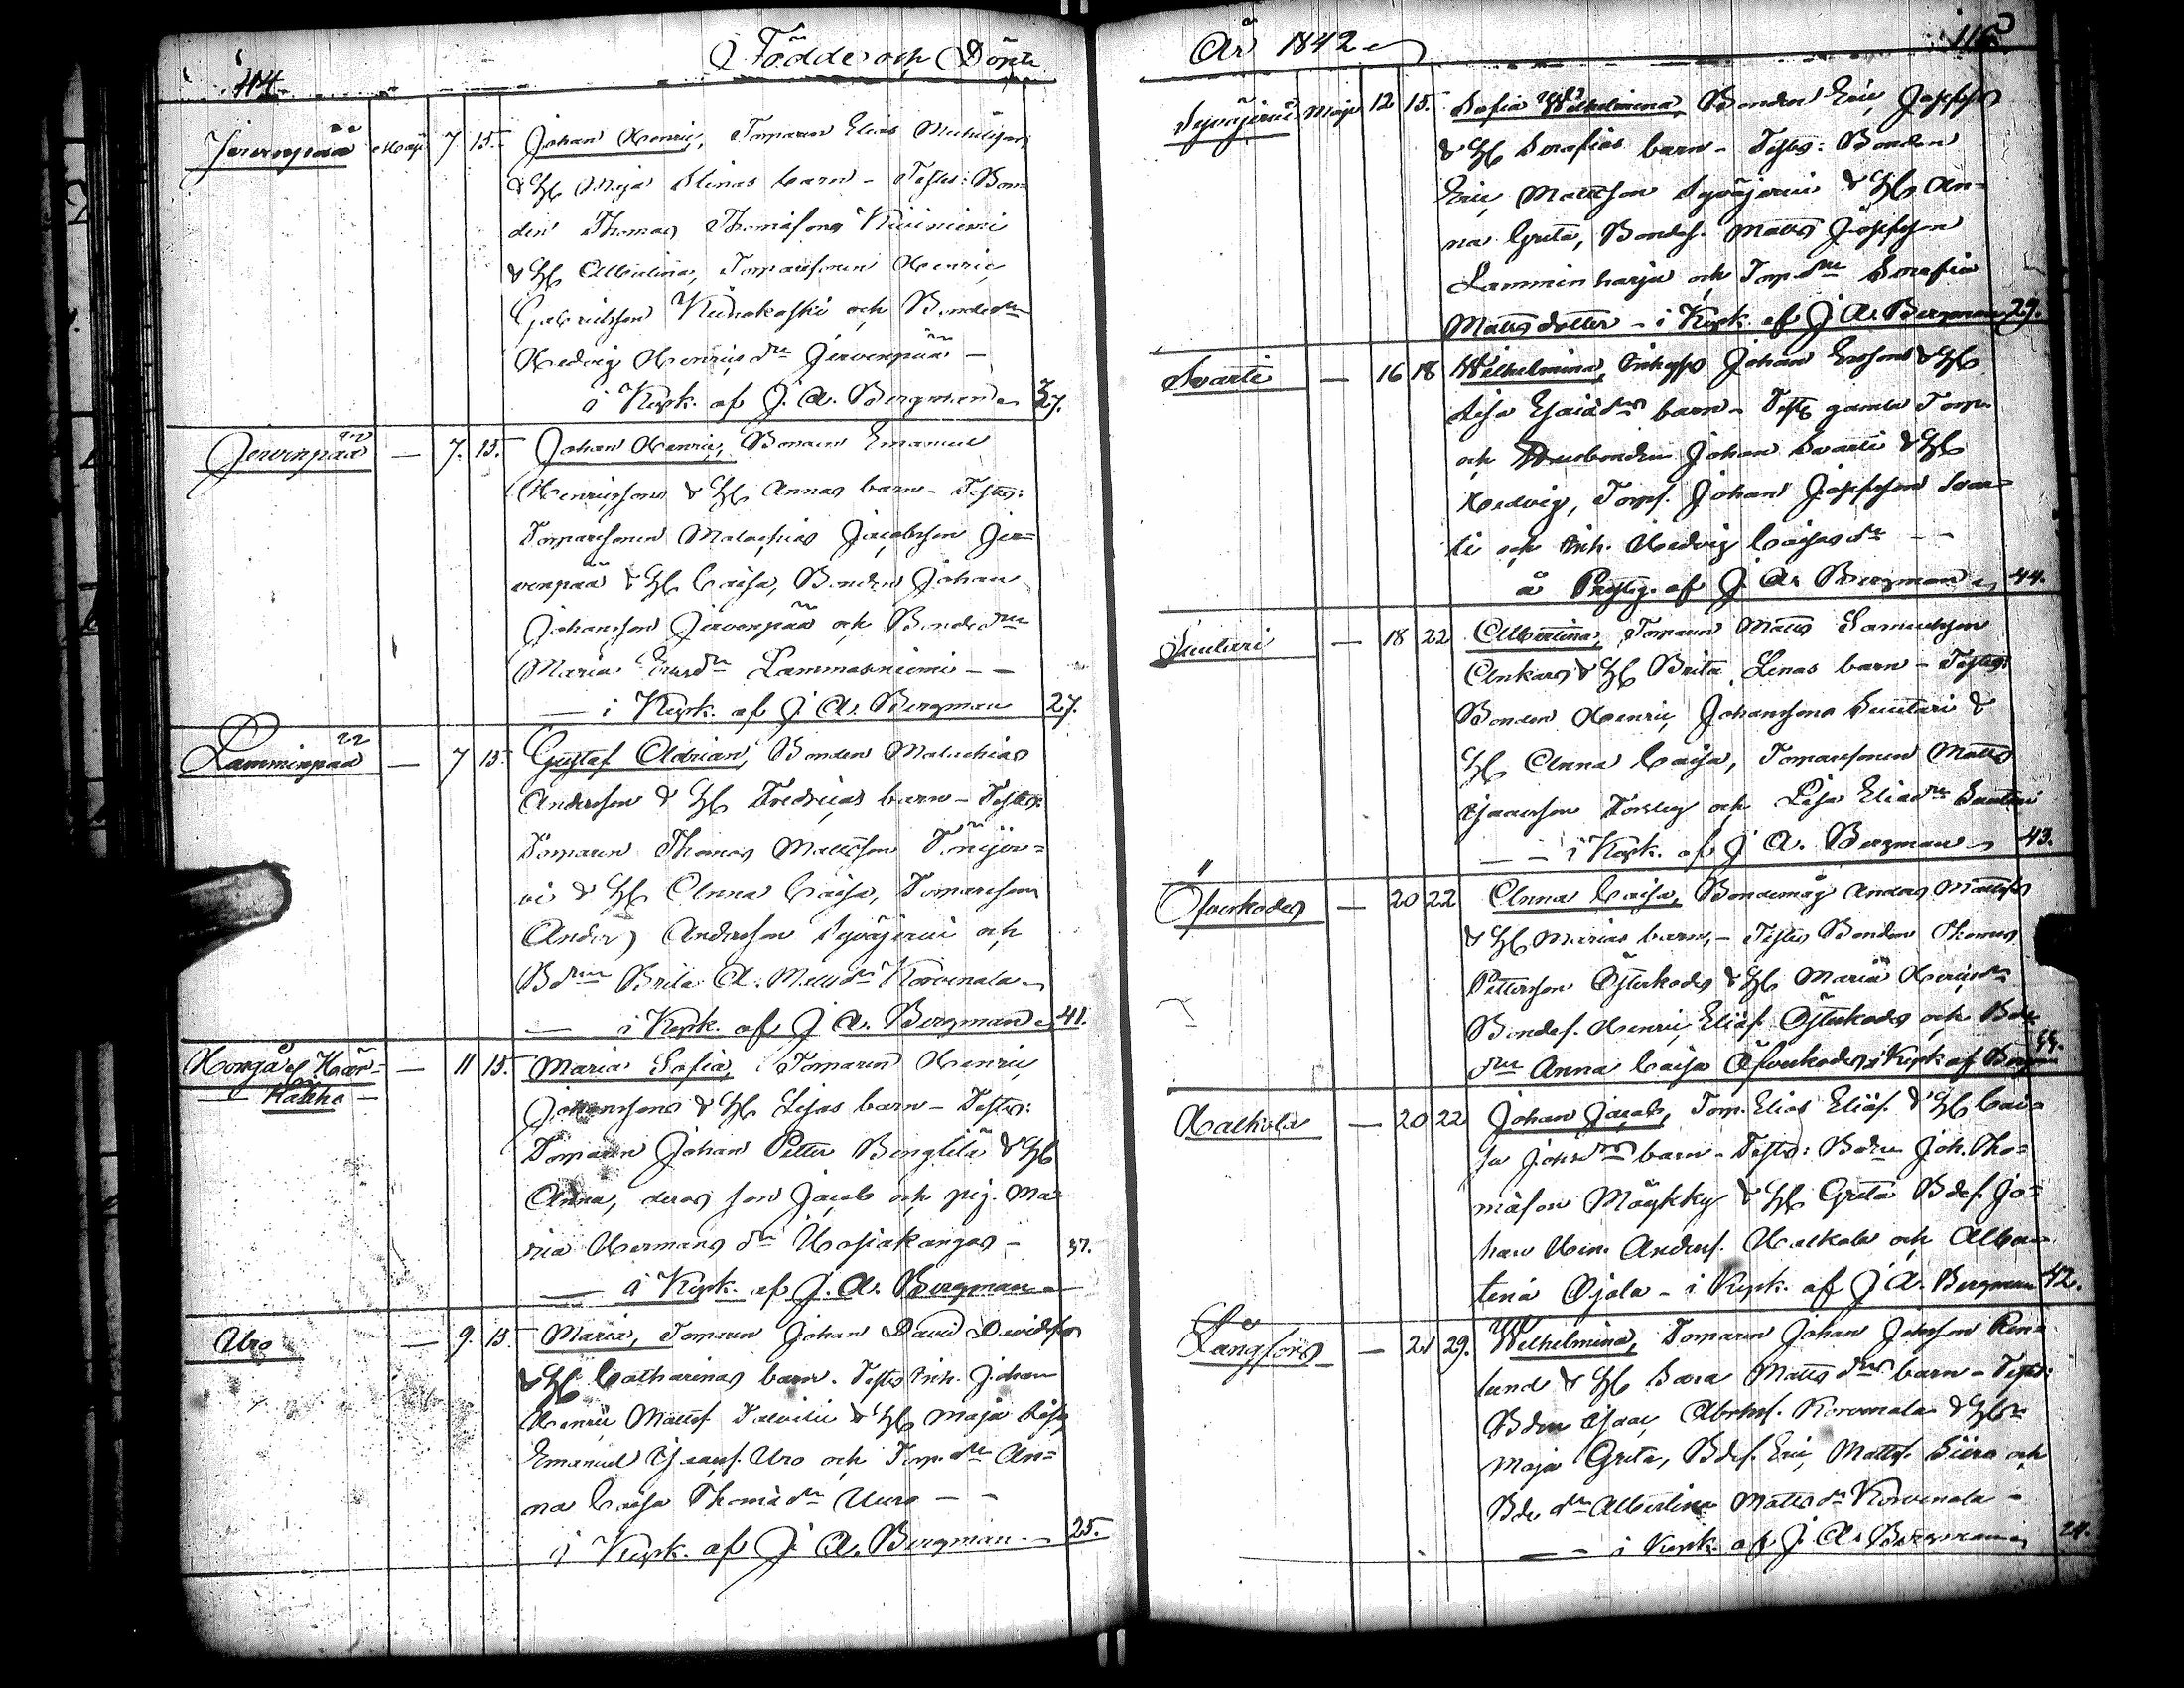 114
Födde och Döpte
Jervenpää Maji 7 15. Johan Henric, Torparen Elias
& H. Maja Lenas barn - Testes: Bon-
den Thomas Thomasons Kiviniemi
& H. Albertina, Torparesonen Henric
Gabrielsson och Bondedr
Hedvig Henricsdr Jervenpää -
i Kyrk. af J. A. Bergman 37.
Jervenpää — 7. 15. Johan Henric, Bonden Emanuel
Henricssons & H. Annas barn - Testes:
Torparesonen Malachias Jacobsson Jer-
venpää & H. Caisa, Bonden Johan
Johansson Jervenpää och Bondedr
Maria Ericsdr Lammasniemi - -
— i Kyrk. af J. A. Bergman 27.
Lamminpää — 7 15. Gustaf Adrian, Bonden Malachias
Andersson & H. Fredricas barn - Testes:
Torparen Thomas Mattsson
vi & H. Anna Caisa, Torpareson
Anders Andersson Syväjervi och
Bdrn Brita A. Mattsdr Korvenala
— i Kyrk. af J. A. Bergman 41.
Hongåf. Kär-
— Kalho —
— 11 15. Maria Sofia, Torparen Henric
Johanssons & H. Lisas barn - Testes:
Torparen Johan Petter Bengtilä & H.
Anna, deras son Jacob och pig. Ma-
ria Hermansdr Hosiakangas - 37.
— i Kyrk. af J. A. Bergman
Uro — 9. 15 Maria, Torparen Johan David Davidss
& H. Catharinas barn. Testes Inh. Johan
Henric Mattss. & H. Maja Lisa,
Emanuel Isacss. Uro och Torp. dr An-
na Caisa Thomædr Uuro - -
i Kyrk. af J. A. Bergman 25.
År 1842
115
Syväjervi Maji 12 15. Sofia Wilhelmina, Bonden Eric Josephs
& H. Serafias barn - Testes: Bonden
Eric Mattsson Syväjervi & H. An-
na Greta, Bondes. Matts Josephsson
Lamminharja och Torp.dr Serafia
Mattsdotter - i Kyrk. af J. A. Bergman 29.
Svarti — 16 18 Wilhelmina, Inhyss Johan Erssons & H.
Lisa Esaiædrs barn - Test. gamla Torp.
och Johan Svarti & H.
Hedvig, Torps. Johan Josephsson Svar-
ti och Inh. Hedvig Caisasdr - -
å Prestg. af J. A. Bergman 44.
Suutari — 18 22 Albertina, Torparen Matts Samuelsson
Ankars & H. Brita Lenas barn - Testes:
Bonden Henric Johanssons Suutari &
H. Anna Caisa, Torparesonen Matts
Isaacsson och Lisa Eliædr Suutari
- - i Kyrk. af J. A. Bergman 43.
Öfverkodes — 20 22 Anna Caisa, Bondemåg Anders Mattss
& H. Marias barn, - Testes Bonden Thomas
Pettersson Österkodes & H. Maria Henricsdr
Bondes. Henric Eliæs. Österkodes och Bde
dr Anna Caisa Öfverkodes i Kyrk af Bergm
Halkola — 20 22 Johan Jacob, Torp. Elias Eliæs. & H. Cai-
sa Johsdrs barn - Testes: Bdn Joh. Tho-
mæson Mäykky & H. Greta Bdes. Jo-
han Hen. Anderss. Halkola och Alber-
tina Ojala - i Kyrk. af J. A. Bergman 42.
Långfors — 21 29. Wilhelmina, Torparen Johan Johnsson Ren-
lund & H. Sara Mattsdrs barn - Testes:
Bden Isaac Abrhss. Korvenala & H.
Maja Greta, Bdes. Eric Mattss. Siira och
Bde dr Albertina Mattsdr Korvenala -
- - i Kyrk. af J. A. Bergman 24.